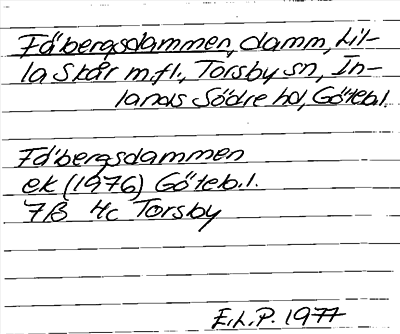 Fåbergsdammen, damm, Lil-
la Skår m.fl., Torsby sn, In-
lands Södre hd, Göteb.l.
Fåbergsdammen
ek (1976) Göteb.l.
7B 4c Torsby
E.L.P. 1977